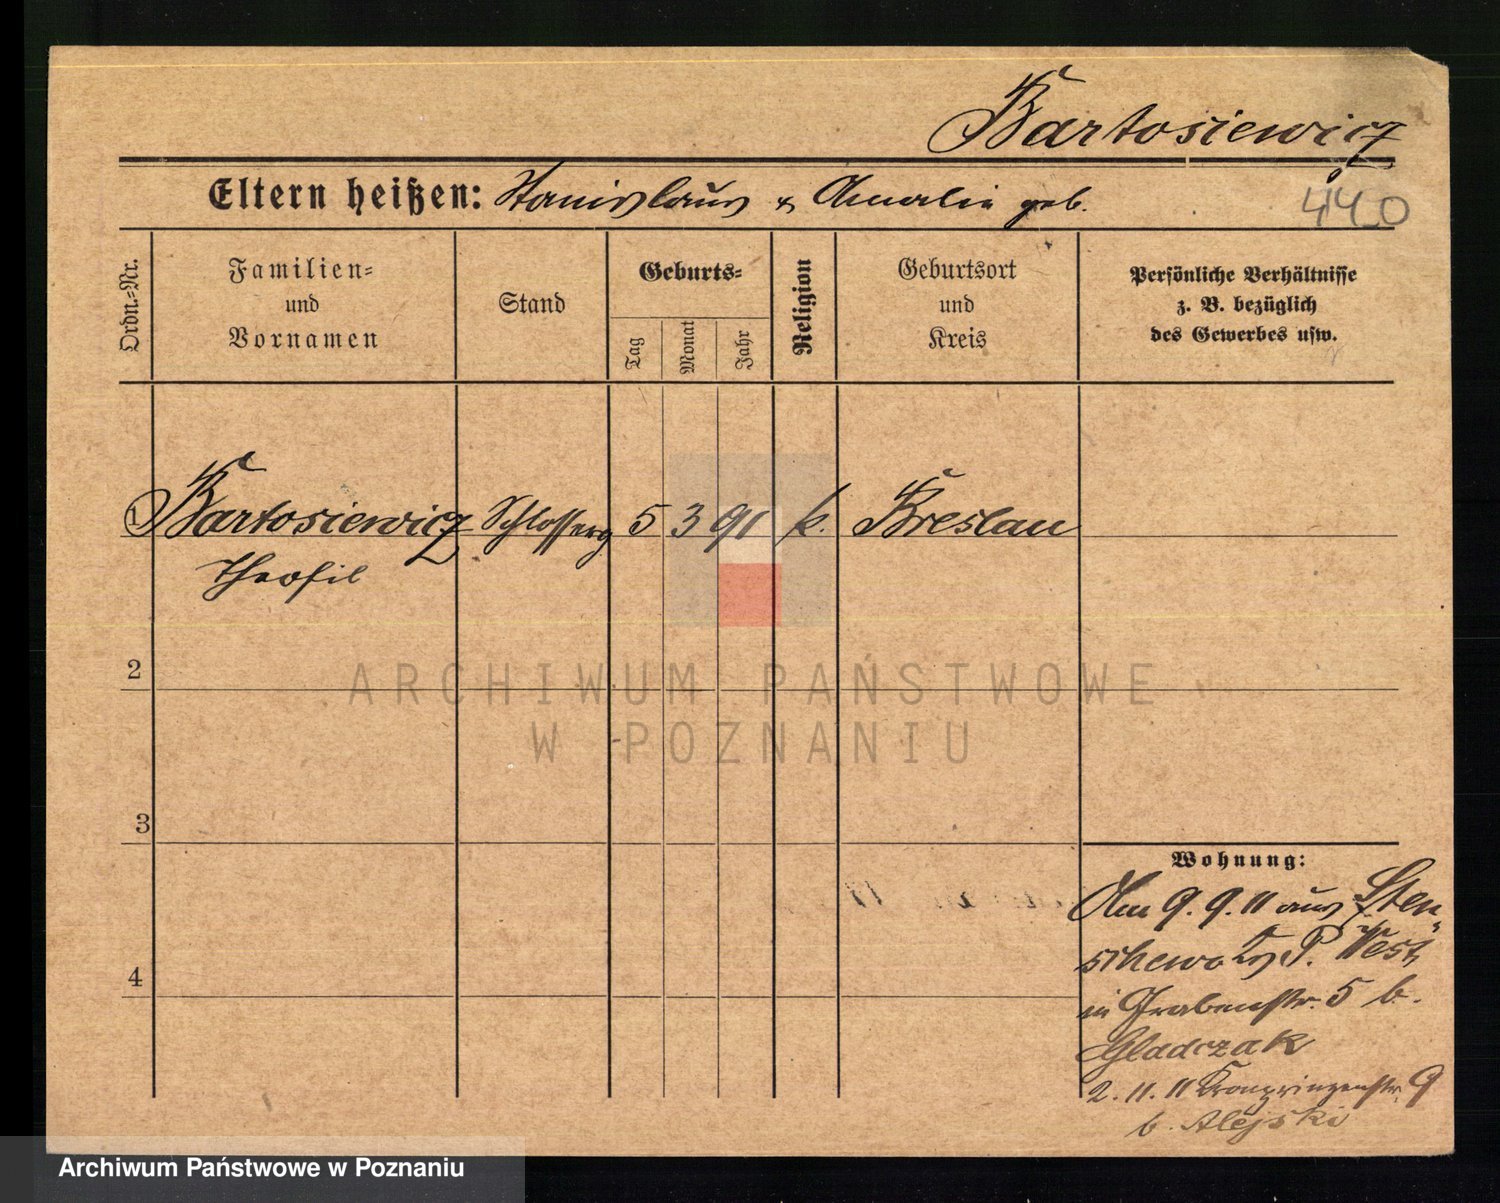 Bartosiewicz
Eltern heißen: Stanislaus & Amalie geb.
4440
Ordn.-Nr.
Familien-
und
Vornamen
Stand
Geburts-
Tag
Monat
Jahr
Religion
Geburtsort
und
Kreis
Persönliche Verhältnisse
z. B. bezüglich
des Gewerbes usw.
1 Bartosiewicz Schlosserg 5 3 91 k. Breslau
Theofil
2
ARCHIWUM PAŃSTWOWE
W POZNANIU
3
Wohnung:
Am 9.9.11 aus Sten-
schewo Krs P. West
in Grabenstr. 5 b.
Gladczak
4
2.11.11 Kronprinzenstr. 9
b. Alejski
Archiwum Państwowe w Poznaniu